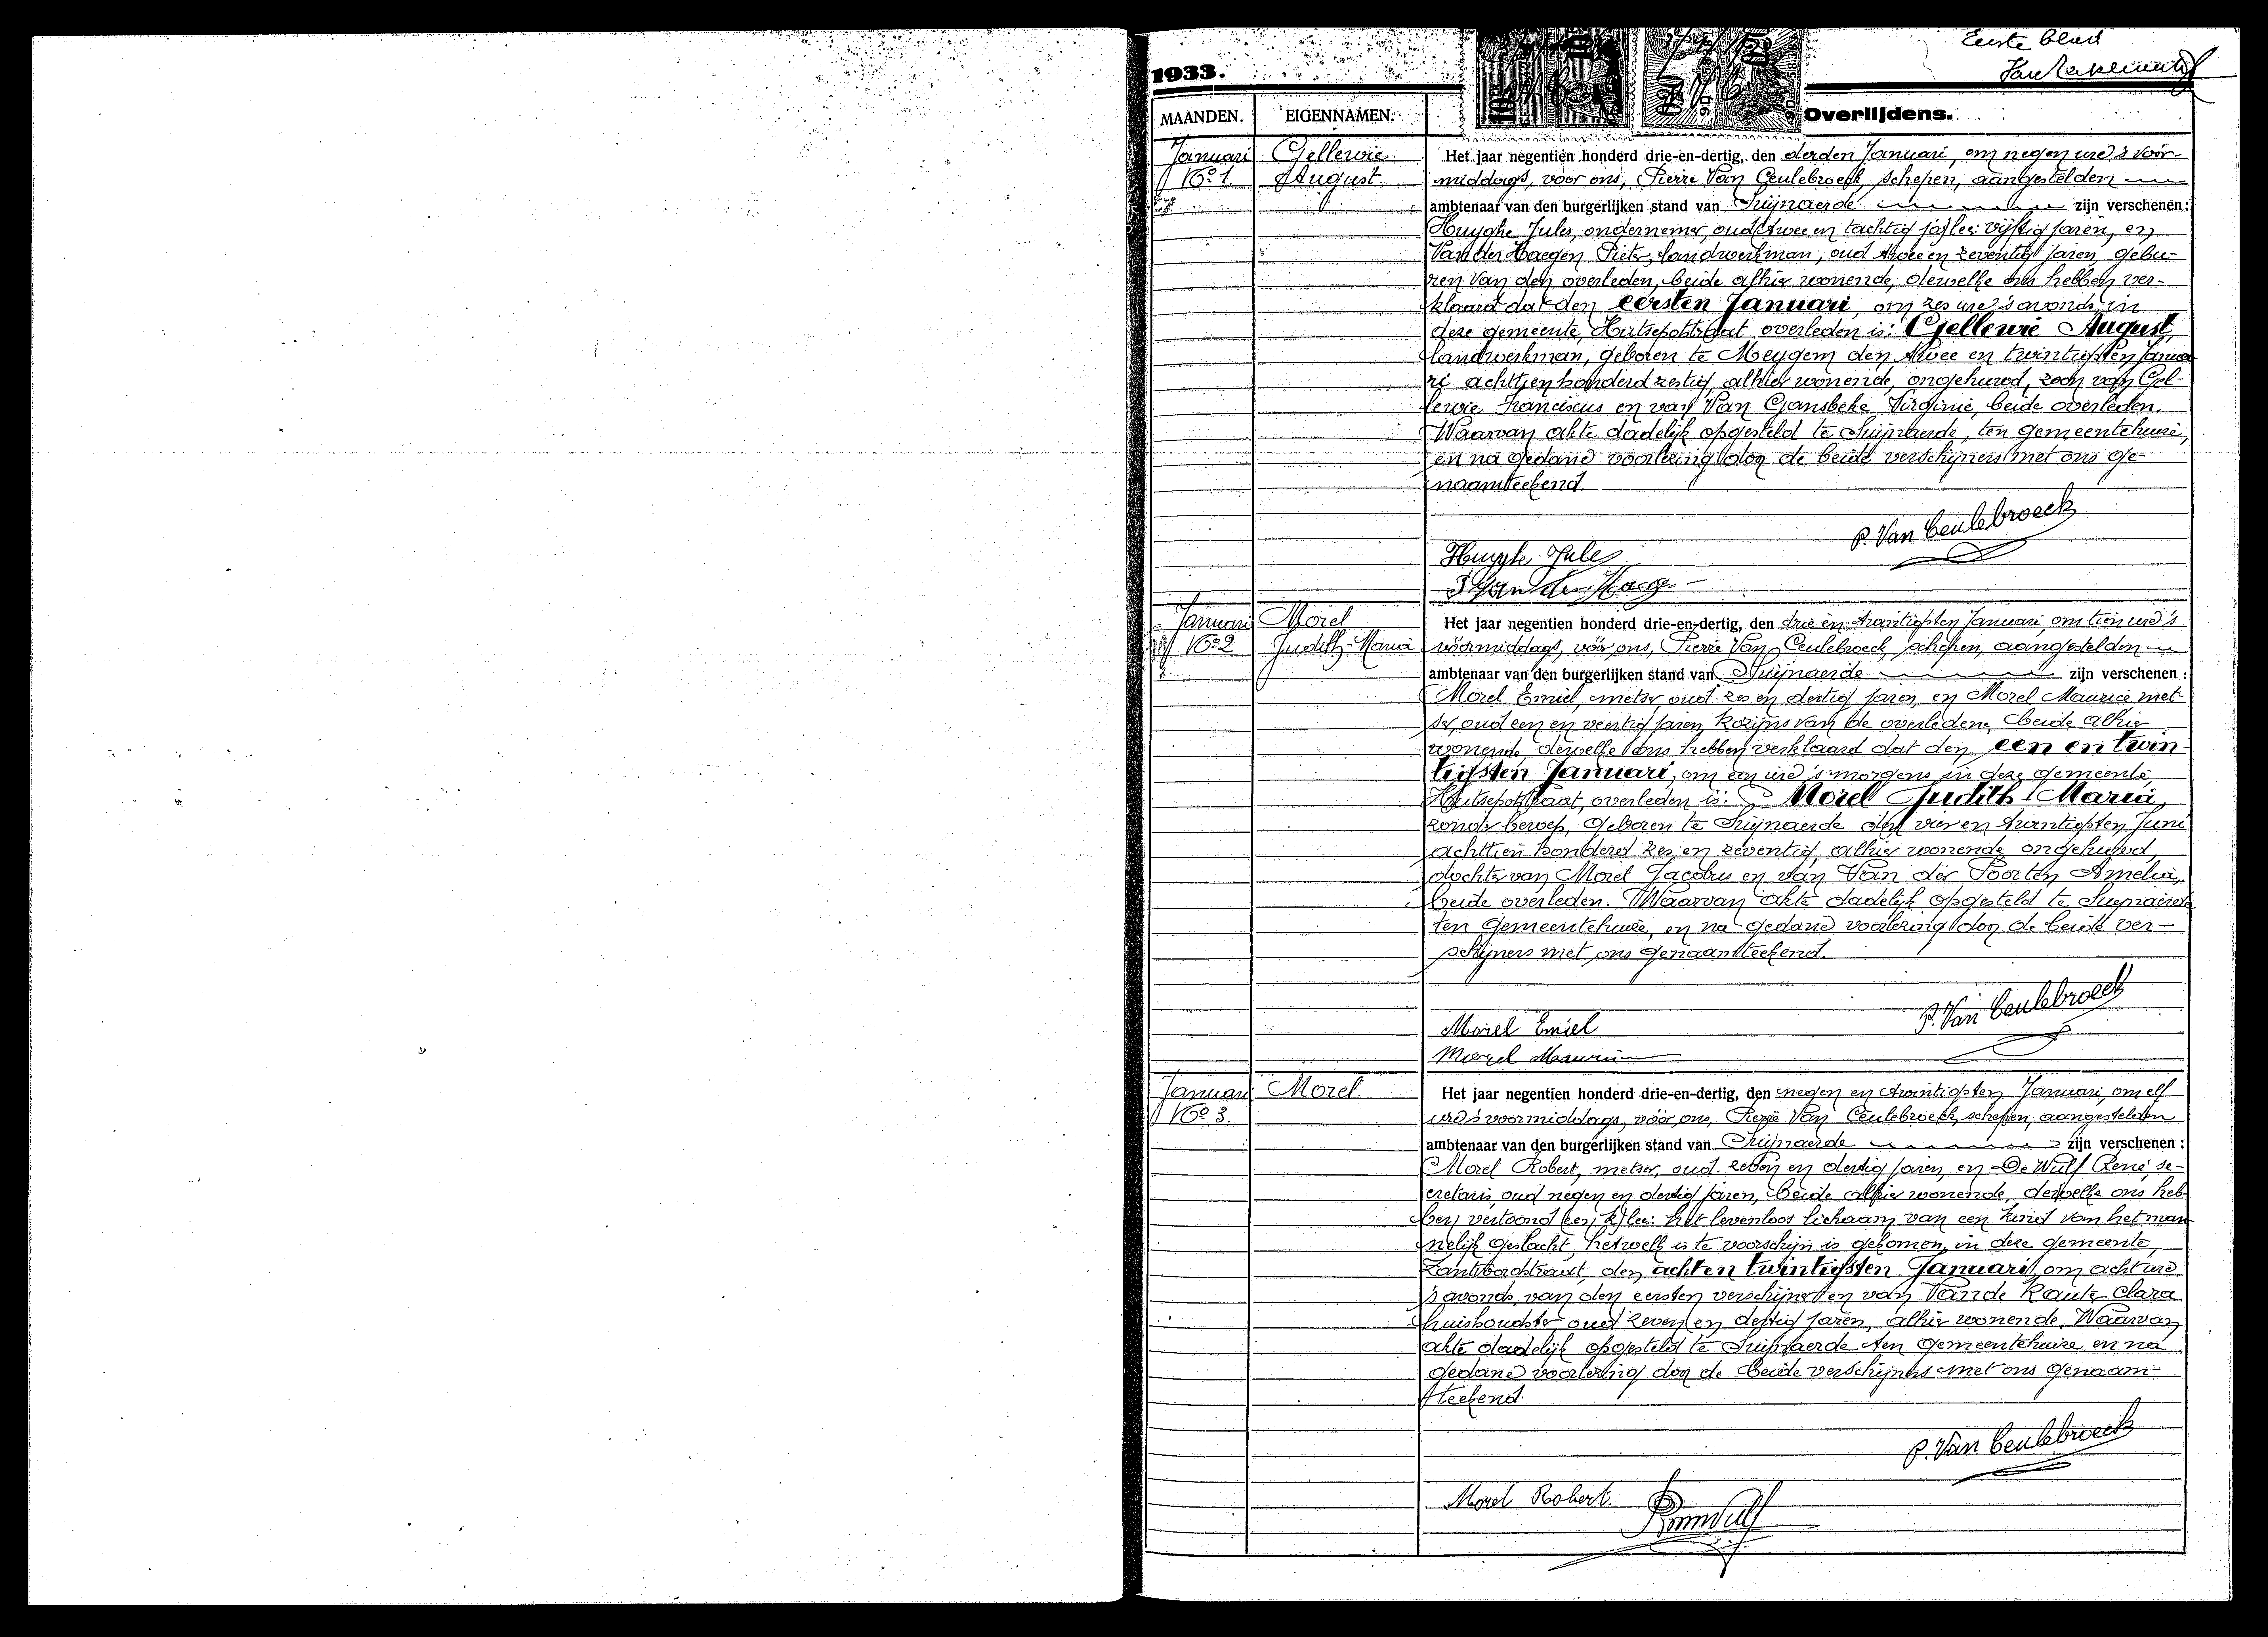 Eerste blad
1933.
MAANDEN. EIGENNAMEN. Overlijdens.
Januari Gellewie Het jaar negentien honderd drie-en-dertig, den derden Januari, om negen ure 's voor-
No 1. August. middags, voor ons, Pierre Van Ceulebroeck, schepen, aangestelden
ambtenaar van den burgerlijken stand van Suijnaerde zijn verschenen:
Huyghe Jules, ondernemer, oud (twee en tachtig ja) lees: vijftig jaren, en
Van der Haegen Pieter, landwerkman, oud twee en zeventig jaren, gebu-
ren van den overleden, beide alhier wonende, dewelke ons hebben ver-
klaard dat den eersten Januari, om zes ure 's avonds in
deze gemeente, Hutsepotstraat overleden is: Gellewie August,
landwerkman, geboren te Meygem den twee en twintigsten Janua-
ri achttien honderd zestig, alhier wonende, ongehuwd, zoon van Gel-
lewie Franciscus en van Van Gansbeke Virginie, beide overleden.
Waarvan akte dadelijk opgesteld te Suijnaerde, ten gemeentehuize,
en na gedane voorlezing door de beide verschijners met ons ge-
naamteekend.
P. Van Ceulebroeck
Huyghe Jules
P Van der Haeg
Januari Morel Het jaar negentien honderd drie-en-dertig, den drie en twintigsten Januari, om tien ure 's
No 2 Judith-Maria voormiddags, vóór ons, Pierre Van Ceulebroeck, schepen, aangestelden
ambtenaar van den burgerlijken stand van Suijnaerde zijn verschenen :
Morel Emiel, metser, oud zes en dertig jaren, en Morel Maurice met-
ser, oud een en veertig jaren, kozijns van de overledene, beide alhier
wonende, dewelke ons hebben verklaard dat den een en twin-
tigsten Januari, om een ure 's morgens in deze gemeente,
Hutsepotstraat, overleden is: Morel Judith Maria,
zonder beroep, geboren te Suijnaerde den vier en twintigsten Juni
achttien honderd zes en zeventig, alhier wonende, ongehuwd,
dochter van Morel Jacobus en van Van der Poorten Amelia,
beide overleden. Waarvan akte dadelijk opgesteld te Suijnaerde
ten gemeentehuize, en na gedane voorlezing door de beide ver-
schijners met ons genaamteekend.
P. Van Ceulebroeck
Morel Emiel
Morel Maurice
Januari Morel. Het jaar negentien honderd drie-en-dertig, den negen en twintigsten Januari, om elf
No 3. ure 's voormiddags, vóór ons, Pierre Van Ceulebroeck, schepen, aangestelden
ambtenaar van den burgerlijken stand van Suijnaerde zijn verschenen :
Morel Robert, metser, oud zeven en dertig jaren, en De Wulf René se-
cretaris, oud negen en dertig jaren, beide alhier wonende, dewelke ons heb-
ben vertoond (een k) lees: het levenloos lichaam van een kind van het man-
nelijk geslacht, hetwelk is te voorschijn is gekomen, in deze gemeente,
Zantvoordstraat, den acht en twintigsten Januari, om acht ure
's avonds, van den eersten verschijner en van Van de Raute Clara
huishoudster, oud zeven en dertig jaren, alhier wonende. Waarvan
akte dadelijk opgesteld te Suijnaerde ten gemeentehuize en na
gedane voorlezing door de beide verschijners met ons genaam-
teekend.
P. Van Ceulebroeck
Morel Robert.